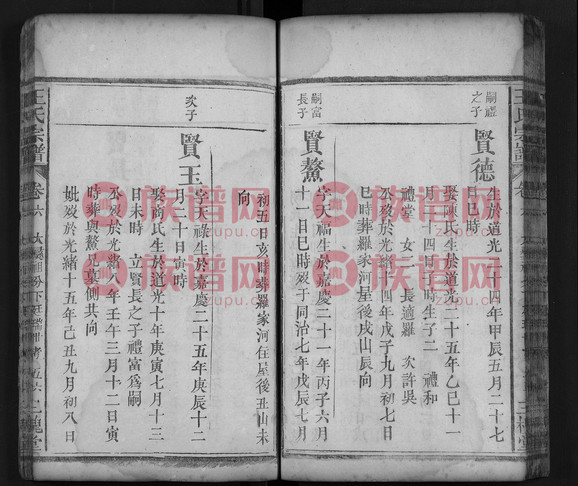 王氏宗譜
卷六
三槐堂
嗣禮
之子
賢德
生於道光二十四年甲辰五月二十七
巳時
娶陳氏生於道光二十五年乙巳十一
月二十四日 時生子二 禮和
禮堂 女二 長適羅 次許吳
公歿於光緒十四年戊子九月初七日
巳時葬羅家河屋後戌山辰向
嗣富
長子
賢鰲
字天福生於嘉慶二十一年丙子六月
十一日巳時歿于同治七年戊辰七月
初五日亥時葬羅家河住屋後丑山未
向
次子
賢玉
字天祿生於嘉慶二十五年庚辰十二
月二十日寅時
娶商氏生於道光十年庚寅七月十三
日未時 立賢長之子禮富為嗣
公歿於光緒 年壬午三月十二日寅
時葬與鰲兄墓側共向
妣歿於光緒十五年己丑九月初八日
王氏宗譜
卷六
三槐堂
族谱网
zupu.cn